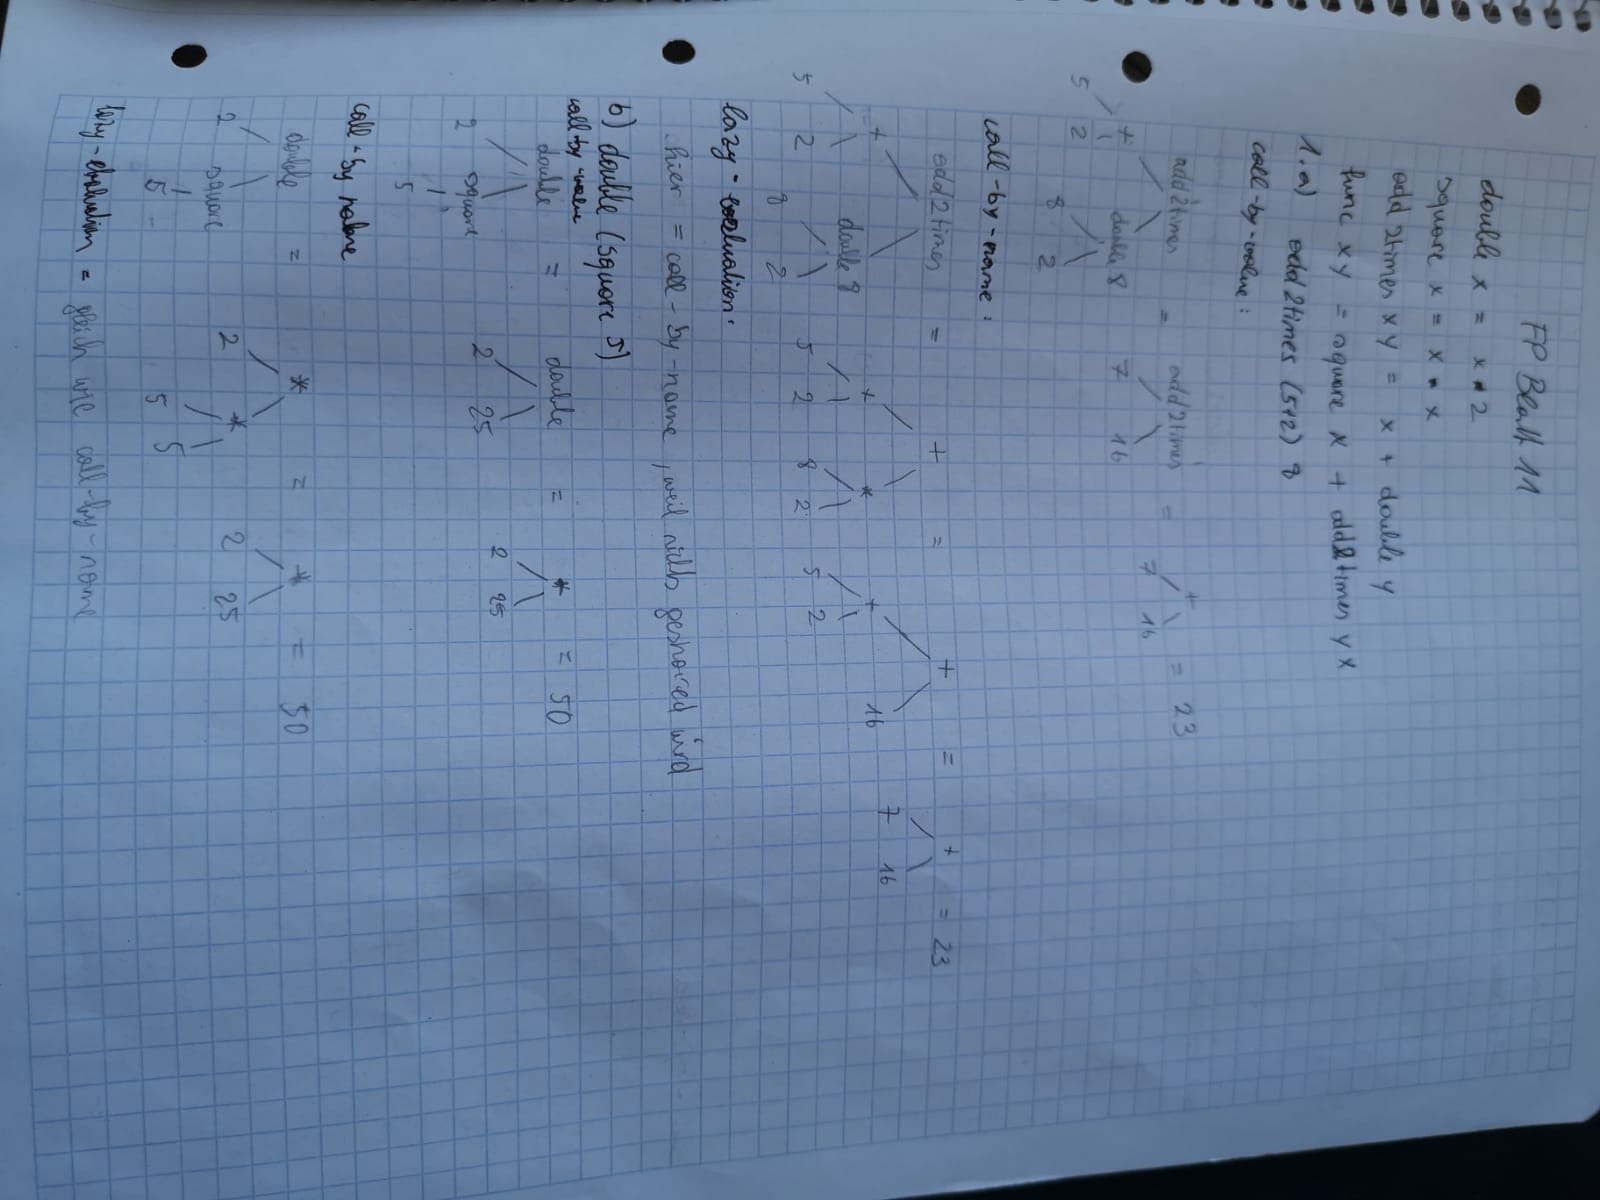 FP Blatt 11
double x = x * 2
square x = x * x
add2times x y = x + double y
func x y = square x + add2times y x
1. a) add2times (5+2) 8
call-by-value:
add2times = add2times = + = 23
+ double 8 7 16 7 16
5 2 8 2
call-by-name:
add2times = + = + = + = 23
+ double 8 + * + 16 7 16
5 2 8 2 5 2 8 2 5 2
lazy-evaluation:
hier = call-by-name, weil nichts geshared wird
b) double (square 5)
call-by-value
double = double = * = 50
2 square 2 25 2 25
5
call-by name
double = * = * = 50
2 square 2 * 2 25
5 5 5
lazy-evaluation = gleich wie call-by-name